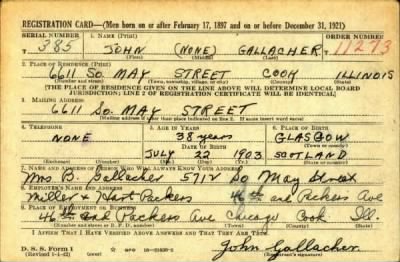 REGISTRATION CARD—(Men born on or after February 17, 1897 and on or before December 31, 1921)
SERIAL NUMBER 1. NAME (Print) ORDER NUMBER
T 385 JOHN (NONE) GALLACHER 11273
(First) (Middle) (Last)
2. PLACE OF RESIDENCE (Print)
6611 SO. MAY STREET COOK ILLINOIS
(Number and street) (Town, township, village, or city) (County) (State)
[THE PLACE OF RESIDENCE GIVEN ON THE LINE ABOVE WILL DETERMINE LOCAL BOARD
JURISDICTION; LINE 2 OF REGISTRATION CERTIFICATE WILL BE IDENTICAL]
3. MAILING ADDRESS
6611 SO. MAY STREET
[Mailing address if other than place indicated on line 2. If same insert word same]
4. TELEPHONE 5. AGE IN YEARS 6. PLACE OF BIRTH
NONE 38 years GLASGOW
DATE OF BIRTH (Town or county)
JULY 22 1903 SCOTLAND
(Exchange) (Number) (Mo.) (Day) (Yr.) (State or country)
7. NAME AND ADDRESS OF PERSON WHO WILL ALWAYS KNOW YOUR ADDRESS
Mrs. B. Gallacher 5712 So May Street
8. EMPLOYER'S NAME AND ADDRESS
Miller & Hart Packers 46th and Packers Ave
9. PLACE OF EMPLOYMENT OR BUSINESS
46th and Packers Ave Chicago Cook Ill.
(Number and street or R. F. D. number) (Town) (County) (State)
I AFFIRM THAT I HAVE VERIFIED ABOVE ANSWERS AND THAT THEY ARE TRUE.
D. S. S. Form 1
(Revised 1-1-42) (over)
John Gallacher
(Registrant's signature)